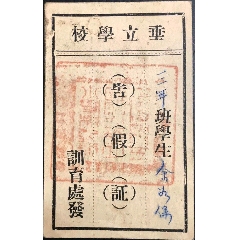 垂立學校
三年班學生余
（告）（假）（証）
訓育處發